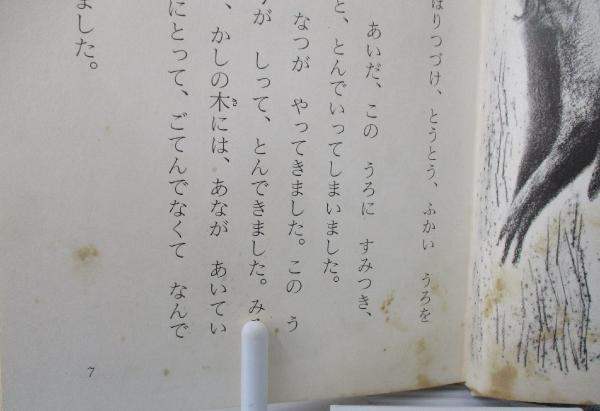 はりつづけ、とうとう、ふかい うろを
あいだ、この うろに すみつき、
と、とんでいってしまいました。
なつが やってきました。この う
が しって、とんできました。み
、かしの木には、あなが あいてい
にとって、ごてんでなくて なんで
ました。
7